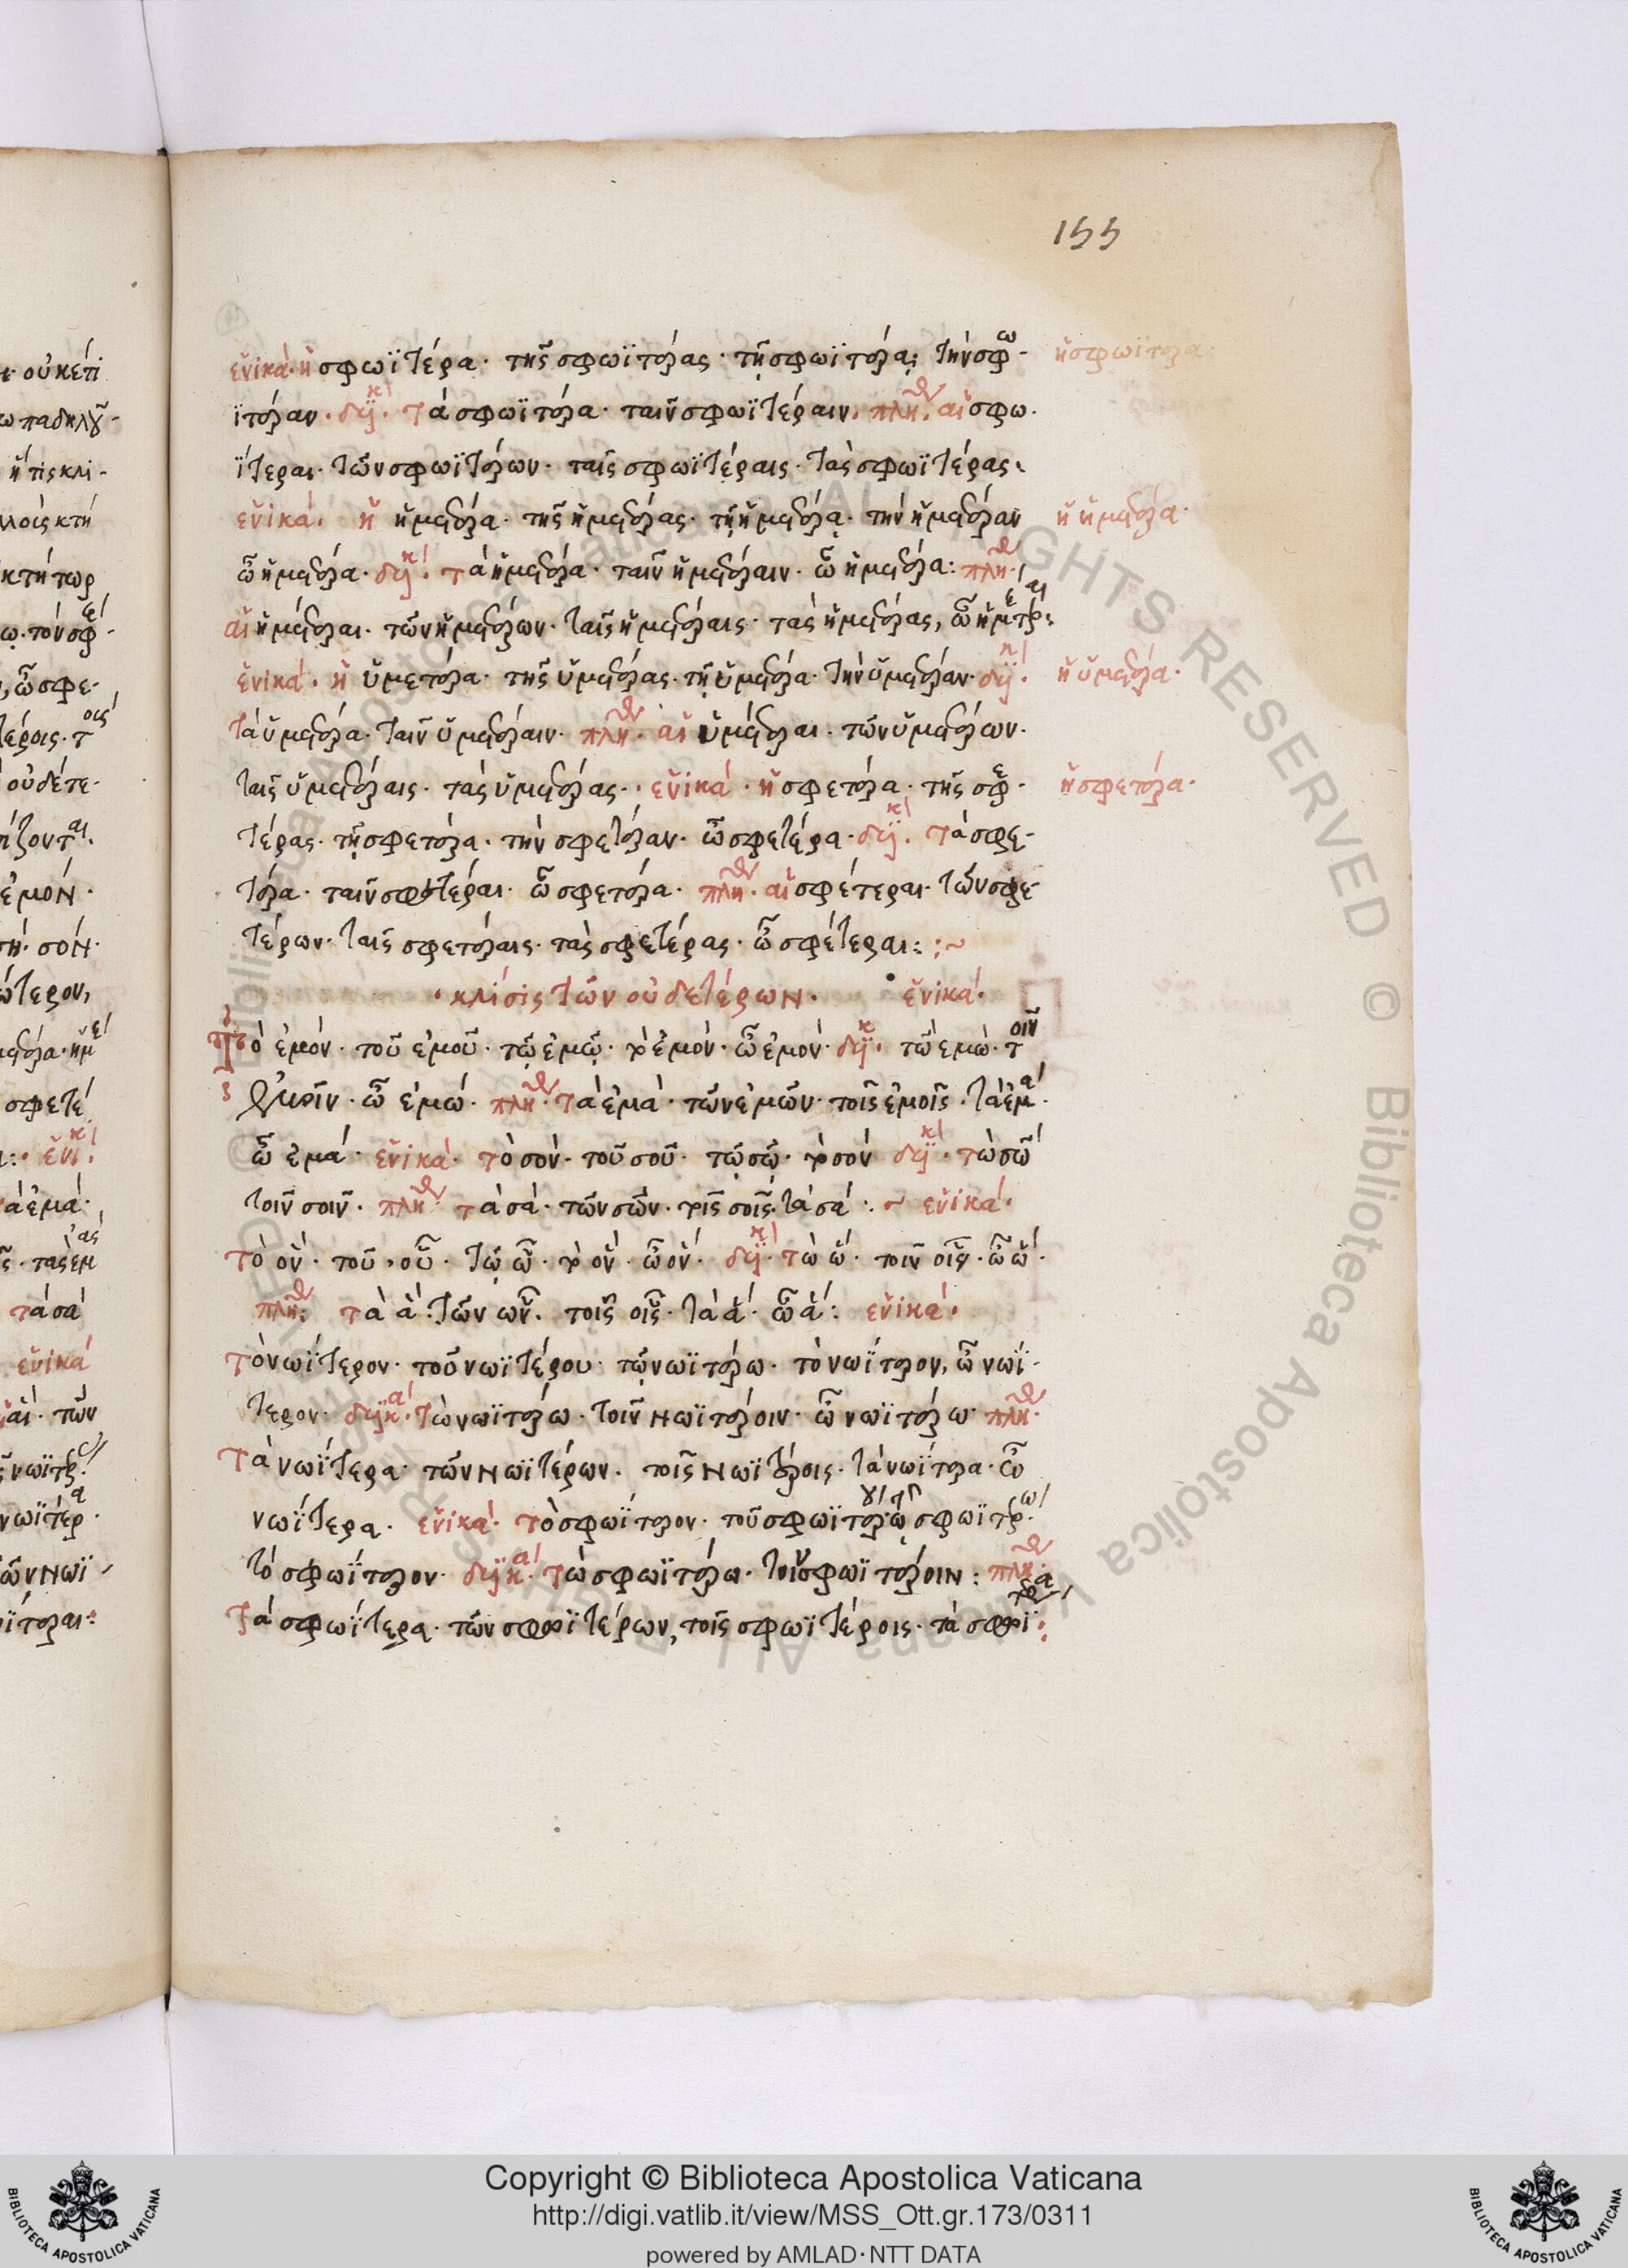 155
ἑνικά· ἡ σφωϊτέρα· τῆς σφωϊτέρας· τῇ σφωϊτέρᾳ· τὴν σφω- ἡ σφωϊτέρα·
ϊτέραν· δυϊκ· τὰ σφωϊτέρα· ταῖν σφωϊτέραιν· πληθ· αἱ σφω-
ΐτεραι· τῶν σφωϊτέρων· ταῖς σφωϊτέραις· τὰς σφωϊτέρας·
ἑνικά· ἡ ἡμετέρα· τῆς ἡμετέρας· τῇ ἡμετέρᾳ· τὴν ἡμετέραν ἡ ἡμετέρα·
ὦ ἡμετέρα· δυϊκ· τὰ ἡμετέρα· ταῖν ἡμετέραιν· ὦ ἡμετέρα: πληθ·
αἱ ἡμέτεραι· τῶν ἡμετέρων· ταῖς ἡμετέραις· τὰς ἡμετέρας, ὦ ἡμέτεραι:
ἑνικά· ἡ ὑμετέρα· τῆς ὑμετέρας· τῇ ὑμετέρα· τὴν ὑμετέραν· δυϊκ· ἡ ὑμετέρα·
τὰ ὑμετέρα· ταῖν ὑμετέραιν· πληθ· αἱ ὑμέτεραι· τῶν ὑμετέρων·
ταῖς ὑμετέραις· τὰς ὑμετέρας· ἑνικά· ἡ σφετέρα· τῆς σφε- ἡ σφετέρα·
τέρας· τῇ σφετέρα· τὴν σφετέραν· ὦ σφετέρα· δυϊκ· τὰ σφε-
τέρα· ταῖν σφετέραι· ὦ σφετέρα· πληθ· αἱ σφέτεραι· τῶν σφε-
τέρων· ταῖς σφετέραις· τὰς σφετέρας· ὦ σφέτεραι: :~
·κλίσις τῶν οὐδετέρων· ἑνικά·
Τὸ ἐμόν· τοῦ ἐμοῦ· τῷ ἐμῷ· τὸ ἐμόν· ὦ ἐμόν· δυϊκ· τὼ ἐμώ· τοῖν
ἐμοῖν· ὦ ἐμώ· πληθ· τὰ ἐμά· τῶν ἐμῶν· τοῖς ἐμοῖς· τὰ ἐμά·
ὦ ἐμά· ἑνικά· τὸ σόν· τοῦ σοῦ· τῷ σῷ· τὸ σόν δυϊκ· τὼ σώ
τοῖν σοῖν· πληθ· τὰ σά· τῶν σῶν· τοῖς σοῖς· τὰ σά·:~ ἑνικά·
τὸ ὅν· τοῦ οὗ· τῷ ᾧ· τὸ ὅν· ὦ ὅν· δυϊκ· τὼ ὥ· τοῖν οἷν· ὦ ὥ·
πληθ: τὰ ἅ· τῶν ὧν· τοῖς οἷς· τὰ ἅ· ὦ ἅ: ἑνικά·
τὸ νωΐτερον· τοῦ νωϊτέρου· τῷ νωϊτέρω· τὸ νωΐτερον, ὦ νωΐ-
τερον· δυϊκά· τὼ νωϊτέρω· τοῖν νωϊτέροιν· ὦ νωϊτέρω· πληθ·
Τὰ νωΐτερα· τῶν νωϊτέρων· τοῖς νωϊτέροις· τὰ νωΐτερα· ὦ
νωΐτερα· ἑνικά· τὸ σφωΐτερον· τοῦ σφωϊτέρου· τῷ σφωϊτέρω·
τὸ σφωΐτερον· δυϊκά· τὼ σφωϊτέρω· τοῖν σφωϊτέροιν: πληθ·
Τὰ σφωΐτερα· τῶν σφωϊτέρων, τοῖς σφωϊτέροις· τὰ σφωΐτερα:
Copyright © Biblioteca Apostolica Vaticana
http://digi.vatlib.it/view/MSS_Ott.gr.173/0311
powered by AMLAD·NTT DATA